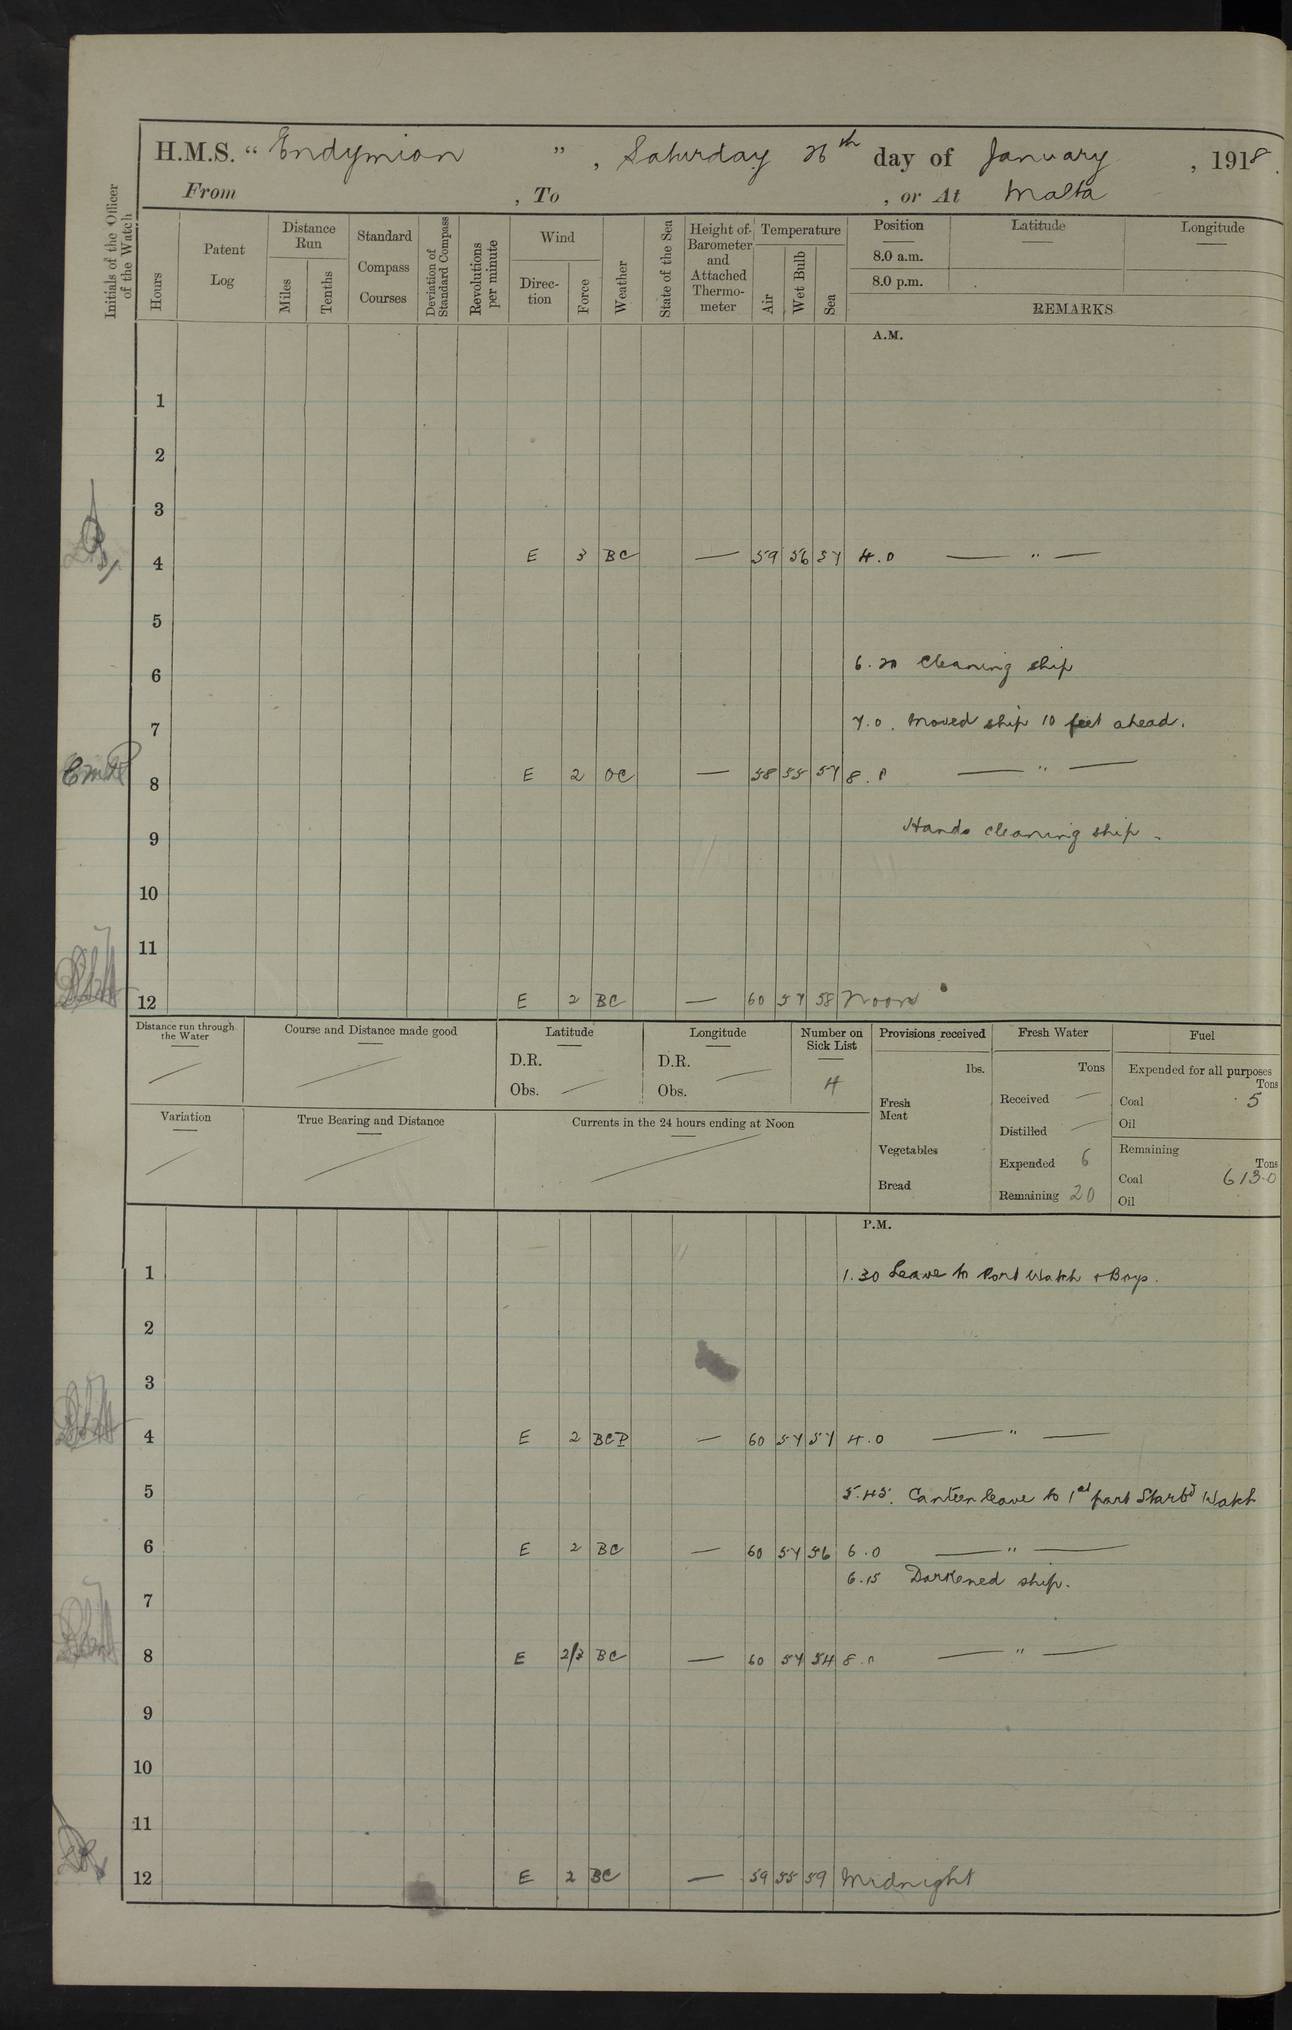 H.M.S. " Endymion ", Saturday 26th day of January, 1918.
From , To , or At Malta
Initials of the Officer of the Watch
Hours
Patent Log
Distance Run
Miles
Tenths
Standard Compass Courses
Deviation of Standard Compass
Revolutions per minute
Wind
Direction
Force
Weather
State of the Sea
Height of Barometer and Attached Thermometer
Temperature
Air
Wet Bulb
Sea
Position Latitude Longitude
8.0 a.m.
8.0 p.m.
REMARKS
A.M.
1
2
3
4 E 3 BC — 59 56 57 4.0 — " —
5
6 6.20 Cleaning ship
7 7.0. Moved ship 10 feet ahead.
8 E 2 OC — 58 55 57 8.0 — " —
9 Hands cleaning ship.
10
11
12 E 2 BC — 60 57 58 Noon
Distance run through the Water
Course and Distance made good
Latitude
D.R.
Obs.
Longitude
D.R.
Obs.
Number on Sick List
4
Variation
True Bearing and Distance
Currents in the 24 hours ending at Noon
Provisions received
lbs.
Fresh Meat
Vegetables
Bread
Fresh Water
Tons
Received —
Distilled —
Expended 6
Remaining 20
Fuel
Expended for all purposes
Tons
Coal 5
Oil
Remaining
Tons
Coal 613.0
Oil
P.M.
1 1.30 Leave to Port Watch + Boys.
2
3
4 E 2 BCP — 60 57 57 4.0 — " —
5 5.45. Canteen leave to 1st part Starbd Watch
6 E 2 BC — 60 57 56 6.0 — " —
6.15 Darkened ship.
7
8 E 2/3 BC — 60 57 54 8.0 — " —
9
10
11
12 E 2 BC — 59 55 59 Midnight